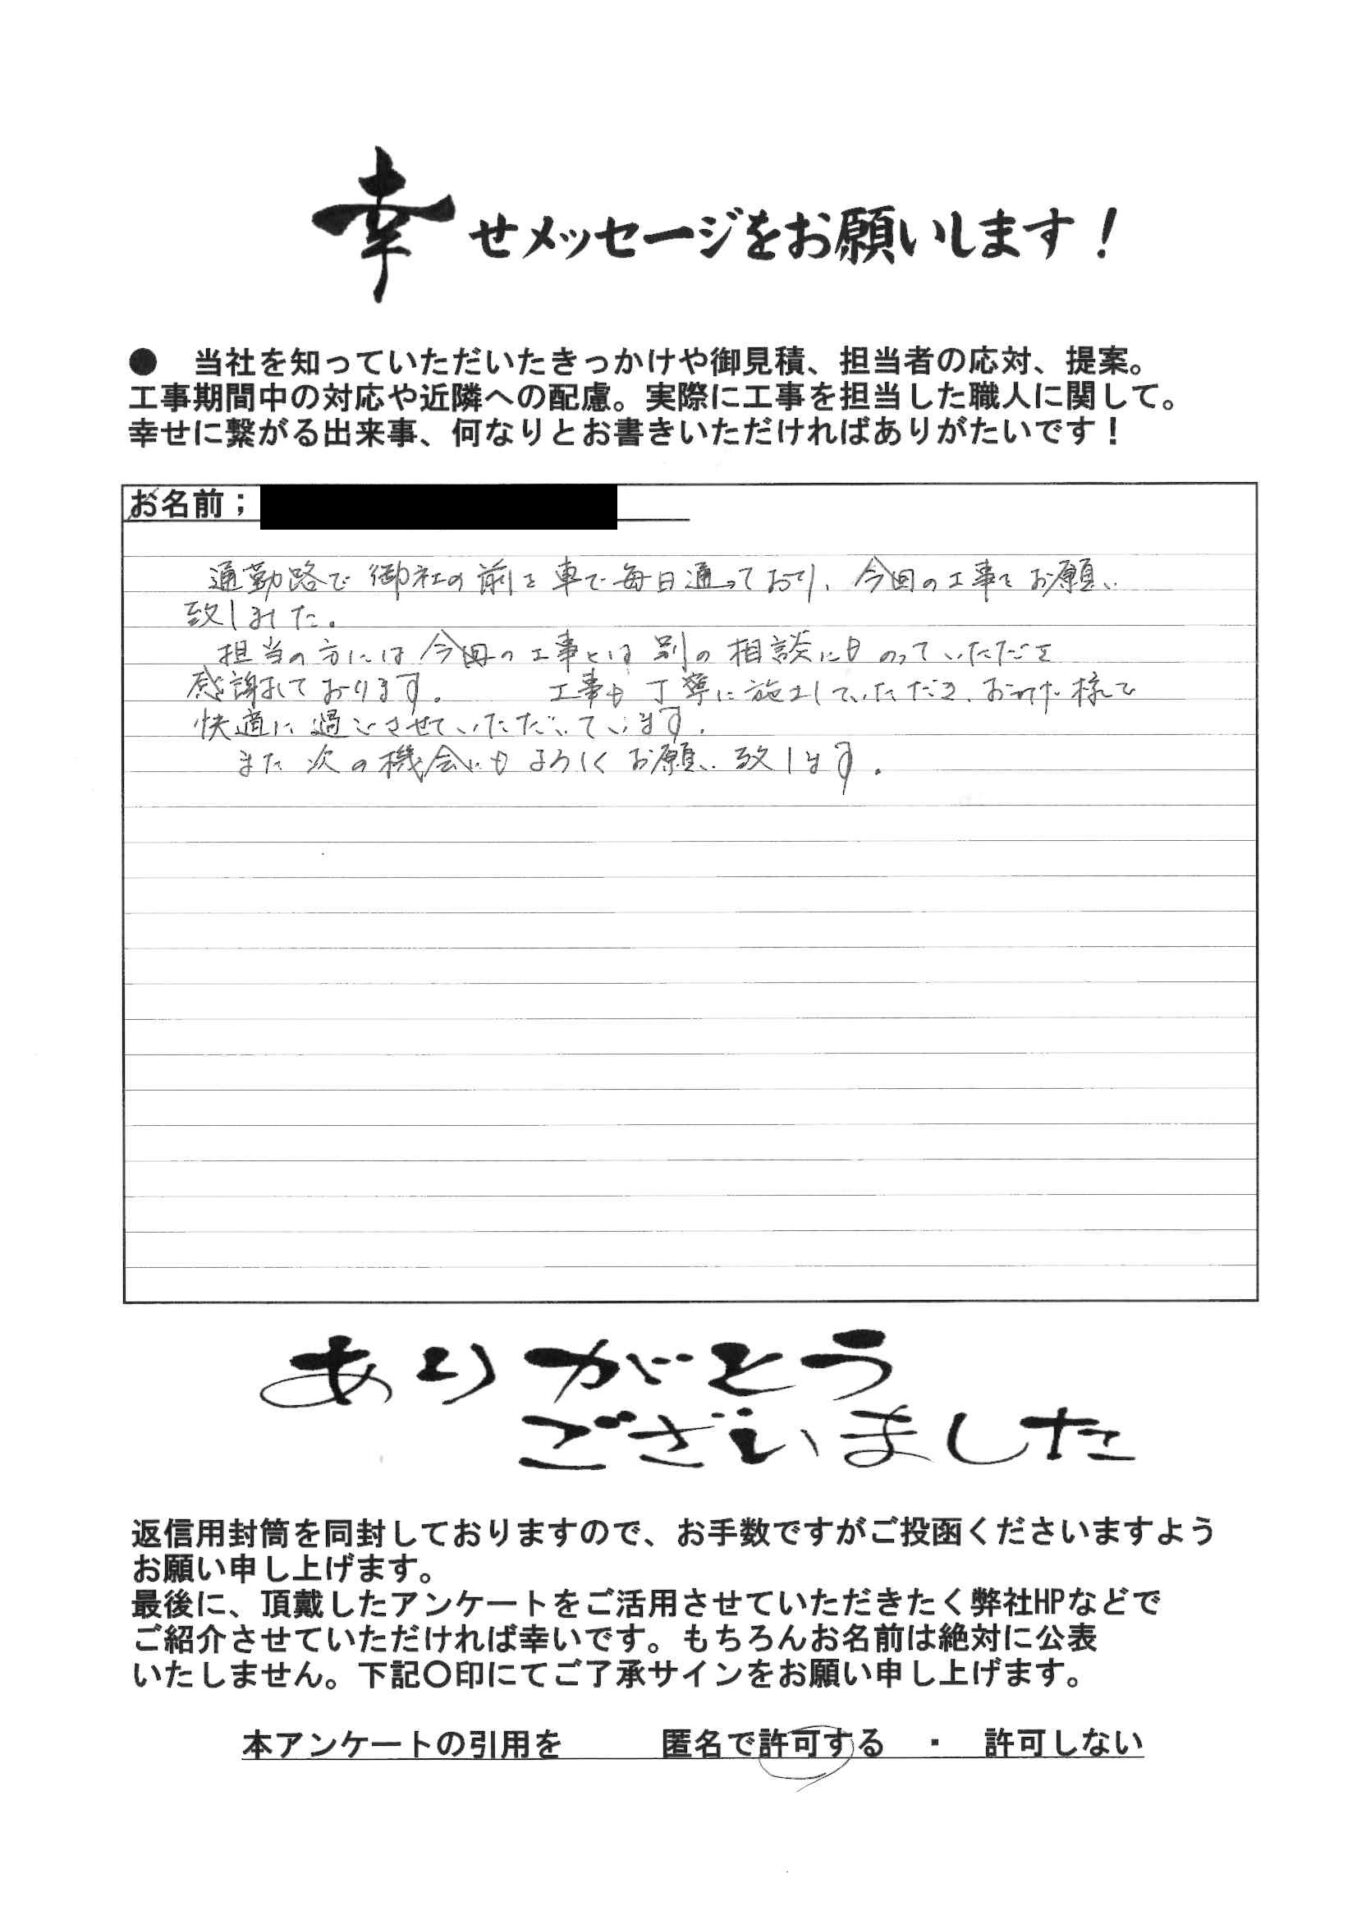 幸せメッセージをお願いします！
●　当社を知っていただいたきっかけや御見積、担当者の応対、提案。
工事期間中の対応や近隣への配慮。実際に工事を担当した職人に関して。
幸せに繋がる出来事、何なりとお書きいただければありがたいです！
お名前；
通勤路で御社の前を車で毎日通っており、今回の工事をお願い
致しました。
担当の方には今回の工事とは別の相談にものっていただき
感謝しております。　工事も丁寧に施工していただき、おかげ様で
快適に過ごさせていただいています。
また次の機会にもよろしくお願い致します。
ありがとう
ございました
返信用封筒を同封しておりますので、お手数ですがご投函くださいますよう
お願い申し上げます。
最後に、頂戴したアンケートをご活用させていただきたく弊社HPなどで
ご紹介させていただければ幸いです。もちろんお名前は絶対に公表
いたしません。下記〇印にてご了承サインをお願い申し上げます。
本アンケートの引用を　　　匿名で許可する　・　許可しない